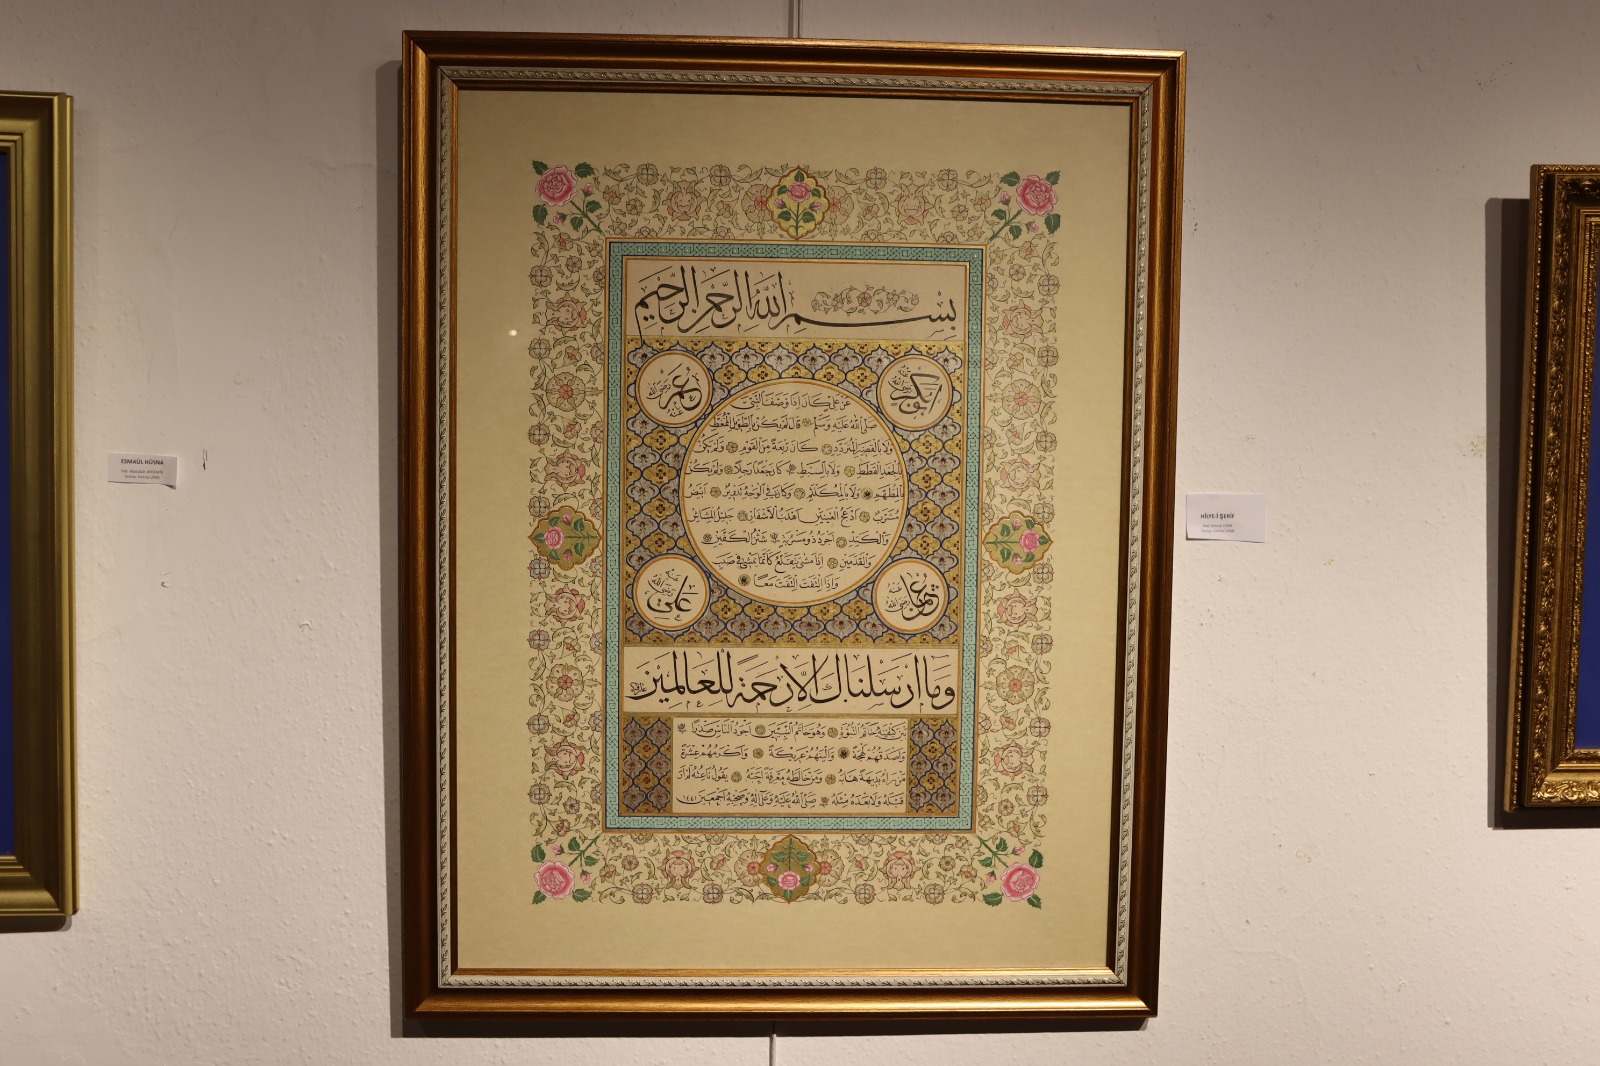 ESMAÜL HÜSNA
بسم الله الرحمن الرحيم
ابوبكر رضي الله عنه
عمر رضي الله عنه
عن علي كان اذا وصف النبي
صلى الله عليه وسلم قال لم يكن بالطويل الممغط
ولا بالقصير المتردد كان ربعة من القوم ولم يكن
بالجعد القطط ولا بالسبط كان جعدا رجلا ولم يكن
بالمطهم ولا بالمكلثم وكان في الوجه تدوير ابيض
مشرب ادعج العينين اهدب الاشفار جليل المشاش
والكتد اجرد ذو مسربة شثن الكفين
والقدمين اذا مشى يتقلع كانما يمشي في صبب
واذا التفت التفت معا
عثمان رضي الله عنه
علي رضي الله عنه
وما ارسلناك الا رحمة للعالمين
بين كتفيه خاتم النبوة وهو خاتم النبيين اجود الناس صدرا
واصدقهم لهجة والينهم عريكة واكرمهم عشرة
من رآه بديهة هابه ومن خالطه معرفة احبه يقول ناعته لم ار
قبله ولا بعده مثله صلى الله عليه وعلى آله وصحبه اجمعين ١٤٤١
HİLYE-İ ŞERİF